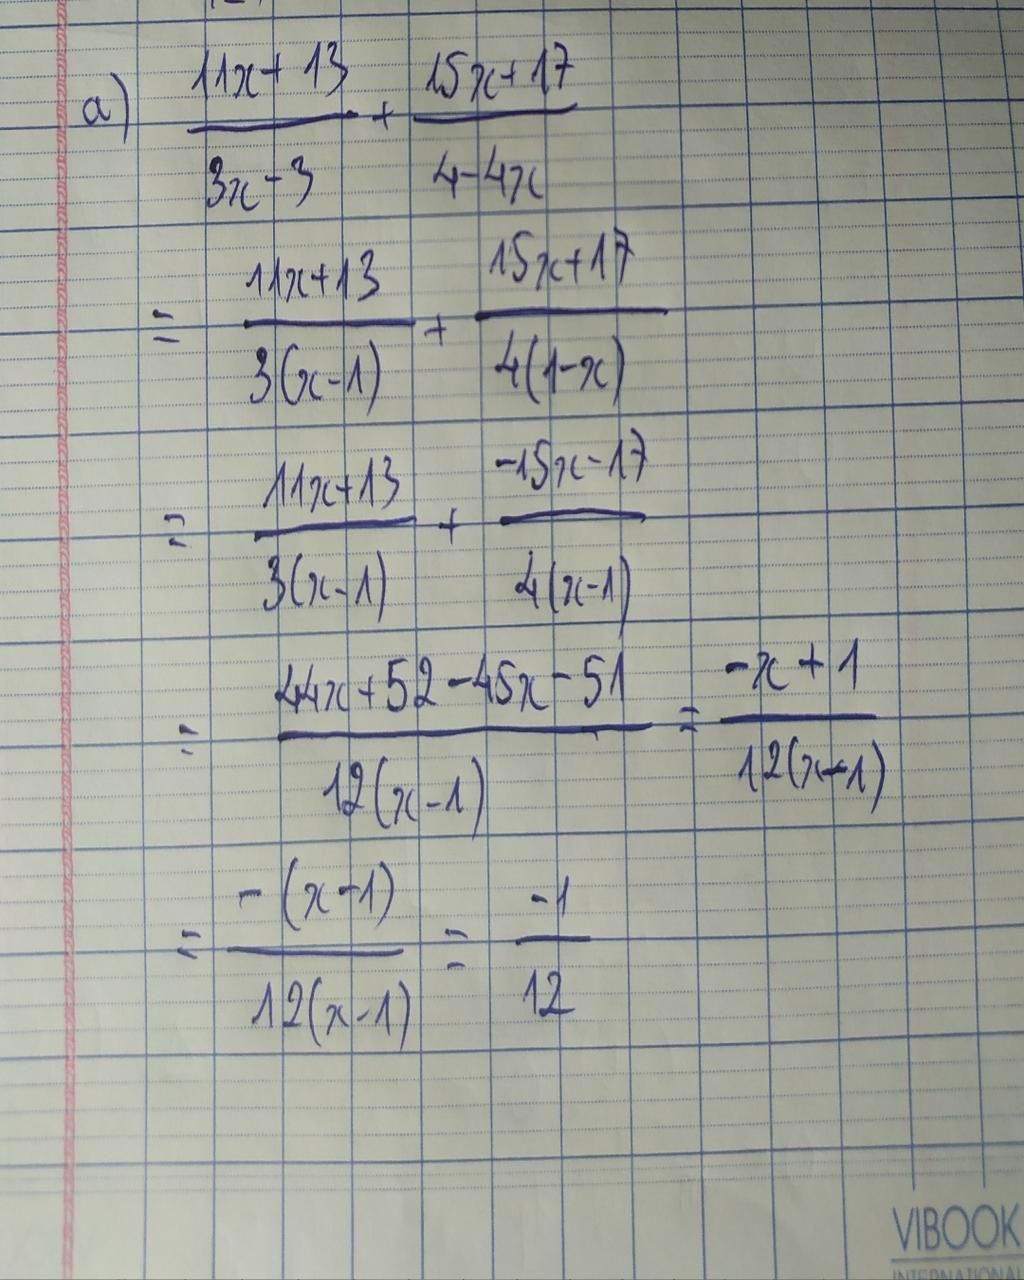 a) (11x + 13)/(3x - 3) + (15x + 17)/(4 - 4x)
= (11x + 13)/(3(x - 1)) + (15x + 17)/(4(1 - x))
= (11x + 13)/(3(x - 1)) + (-15x - 17)/(4(x - 1))
= (44x + 52 - 45x - 51)/(12(x - 1)) = (-x + 1)/(12(x - 1))
= (-(x - 1))/(12(x - 1)) = (-1)/12
VIBOOK
INTERNATIONAL